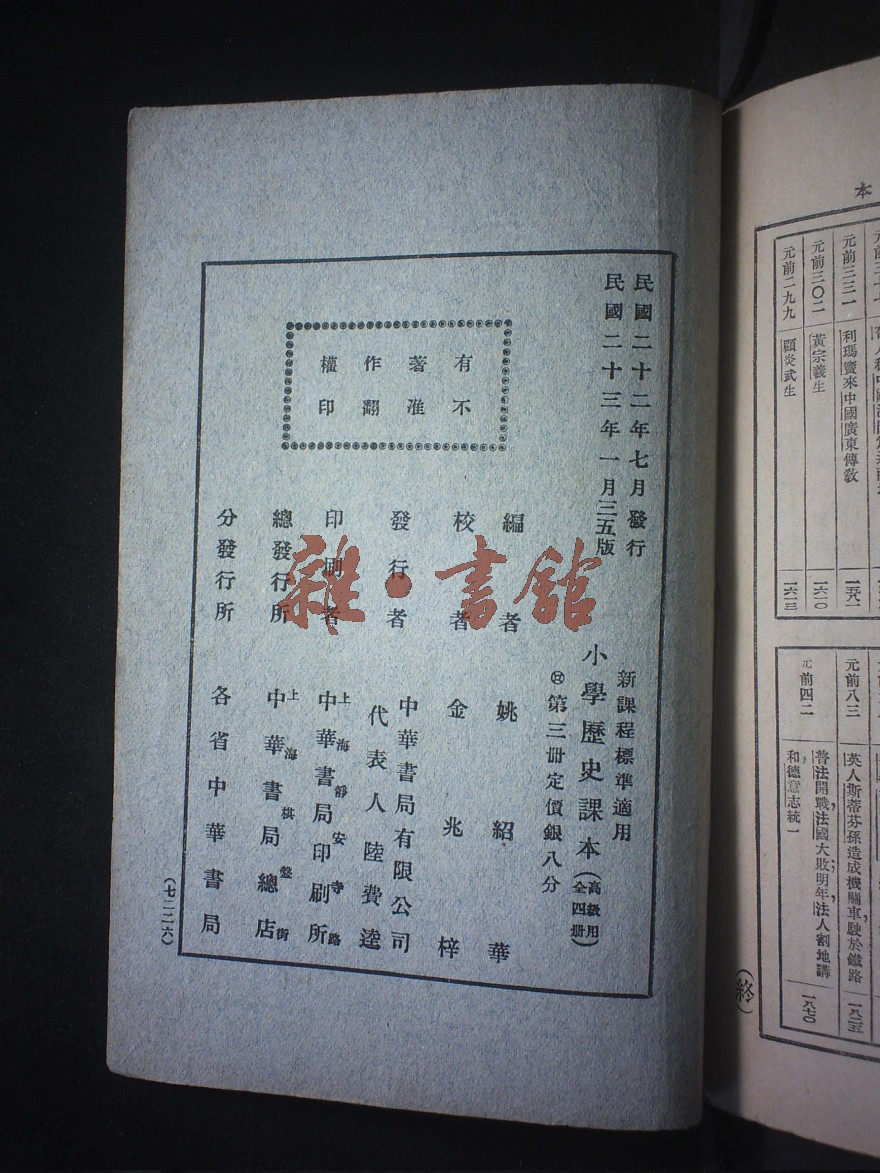 民國二十二年七月發行
民國二十三年一月三五版
新課程標準適用
小學歷史課本(高級用全四册)
第三册定價銀八分
編者 姚紹華
校者 金兆梓
發行者 中華書局有限公司
代表人 陸費逵
印刷者 上海靜安寺路
中華書局印刷所
總發行所 上海棋盤街
中華書局總店
分發行所 各省中華書局
有不
著准
作翻
權印
(七二二六)
雜·書館
本
元前三三一 利瑪竇來中國廣東傳教 一五八一
元前三〇二 黃宗羲生 一六一〇
元前二九九 顧炎武生 一六一三
元前八三 英人斯蒂芬孫造成機關車,駛於鐵路 一八二五
元前四二 普法開戰,法國大敗;明年,法人割地講
和,德意志統一 一八七〇
(終)